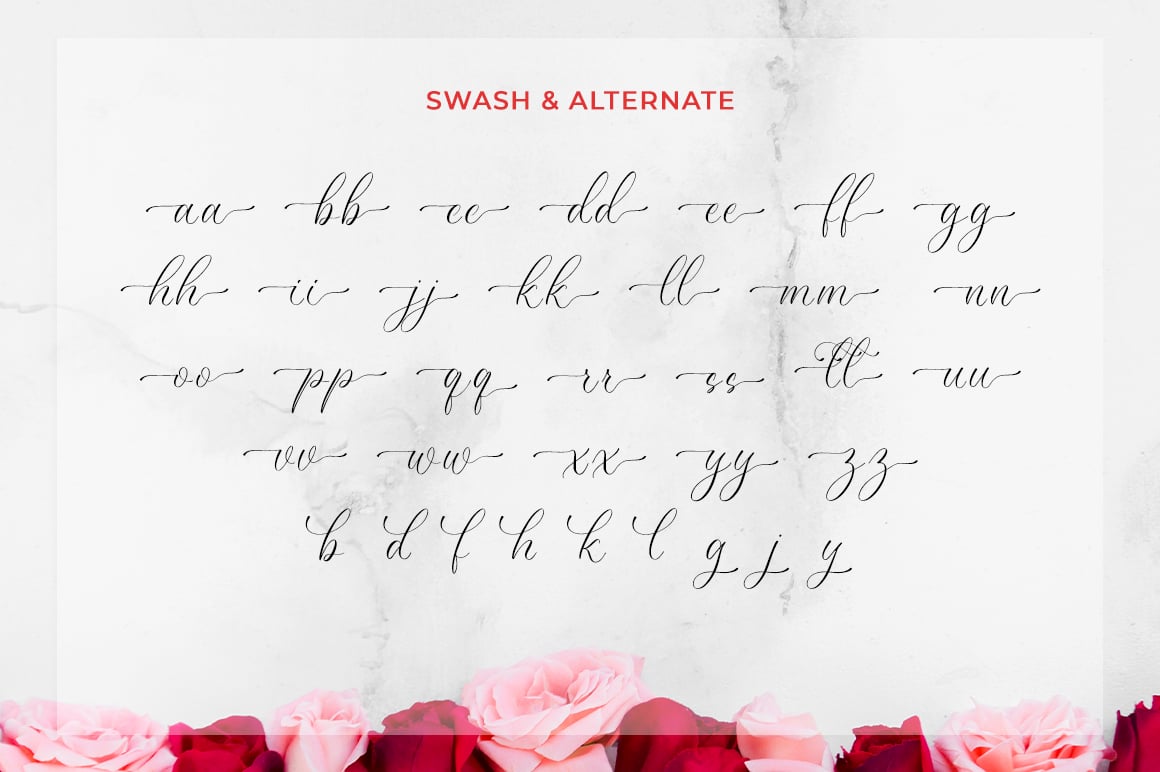 SWASH & ALTERNATE
aa bb cc dd ee ff gg
hh ii jj kk ll mm nn
oo pp qq rr ss tt uu
vv ww xx yy zz
b d f h k l g j y